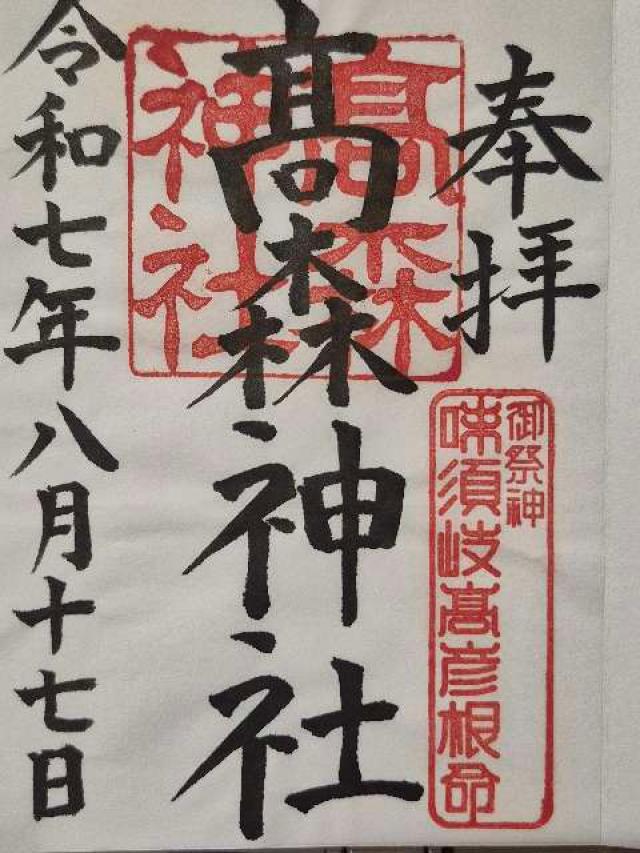 奉拝
御祭神
味須岐髙彦根命
髙森
神社
髙森神社
令和七年八月十七日